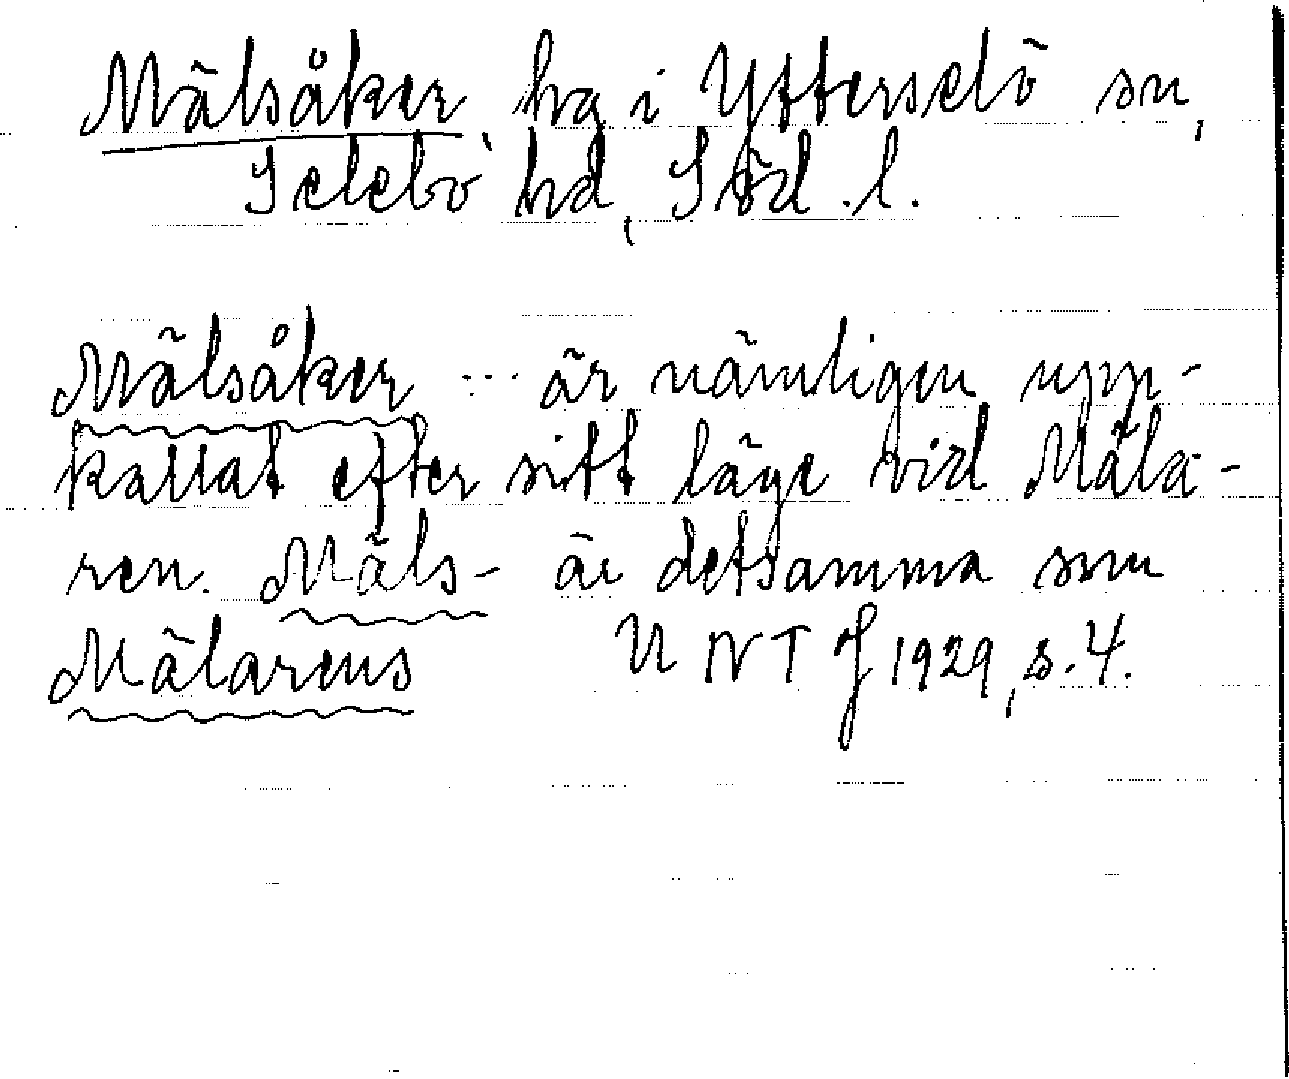 Mälsåker hg i Ytterselö sn,
Selebo hd, Söd. l.
Mälsåker ... är nämligen upp-
kallat efter sitt läge vid Mäla-
ren. Mäls- är detsamma som
Mälarens UNT J 1929, s. 4.